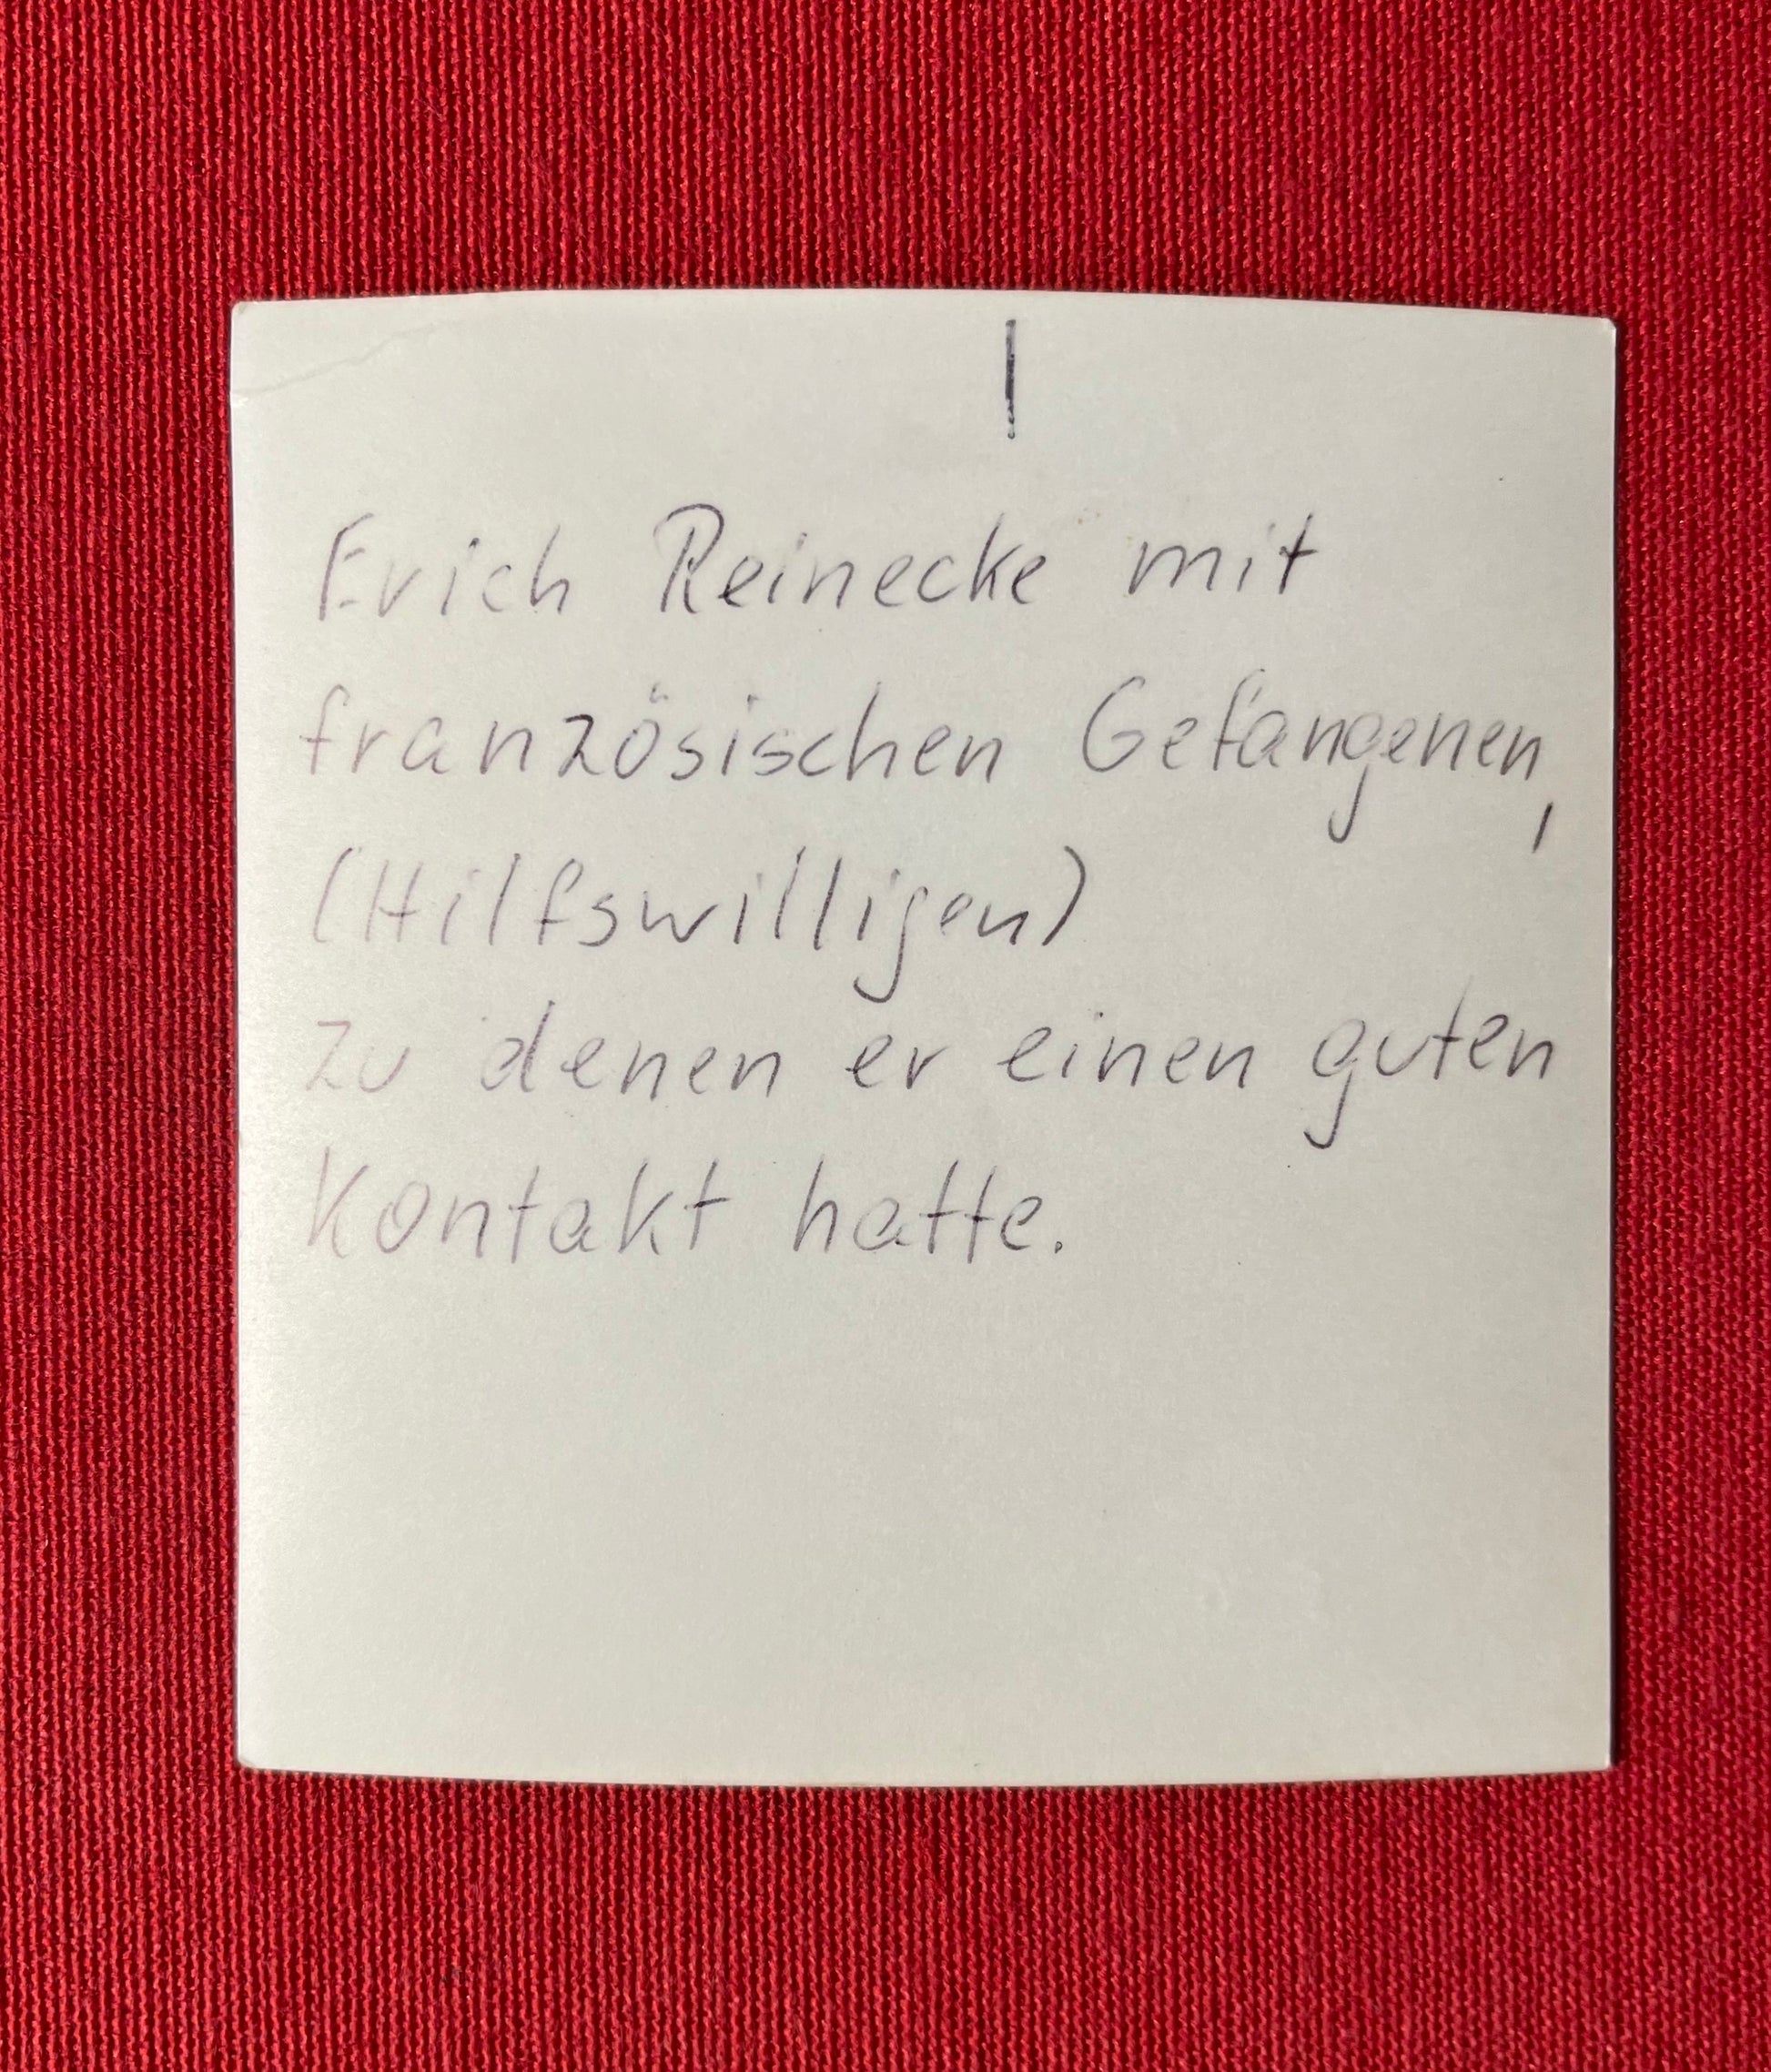 Erich Reinecke mit
französischen Gefangenen,
(Hilfswilligen)
zu denen er einen guten
Kontakt hatte.